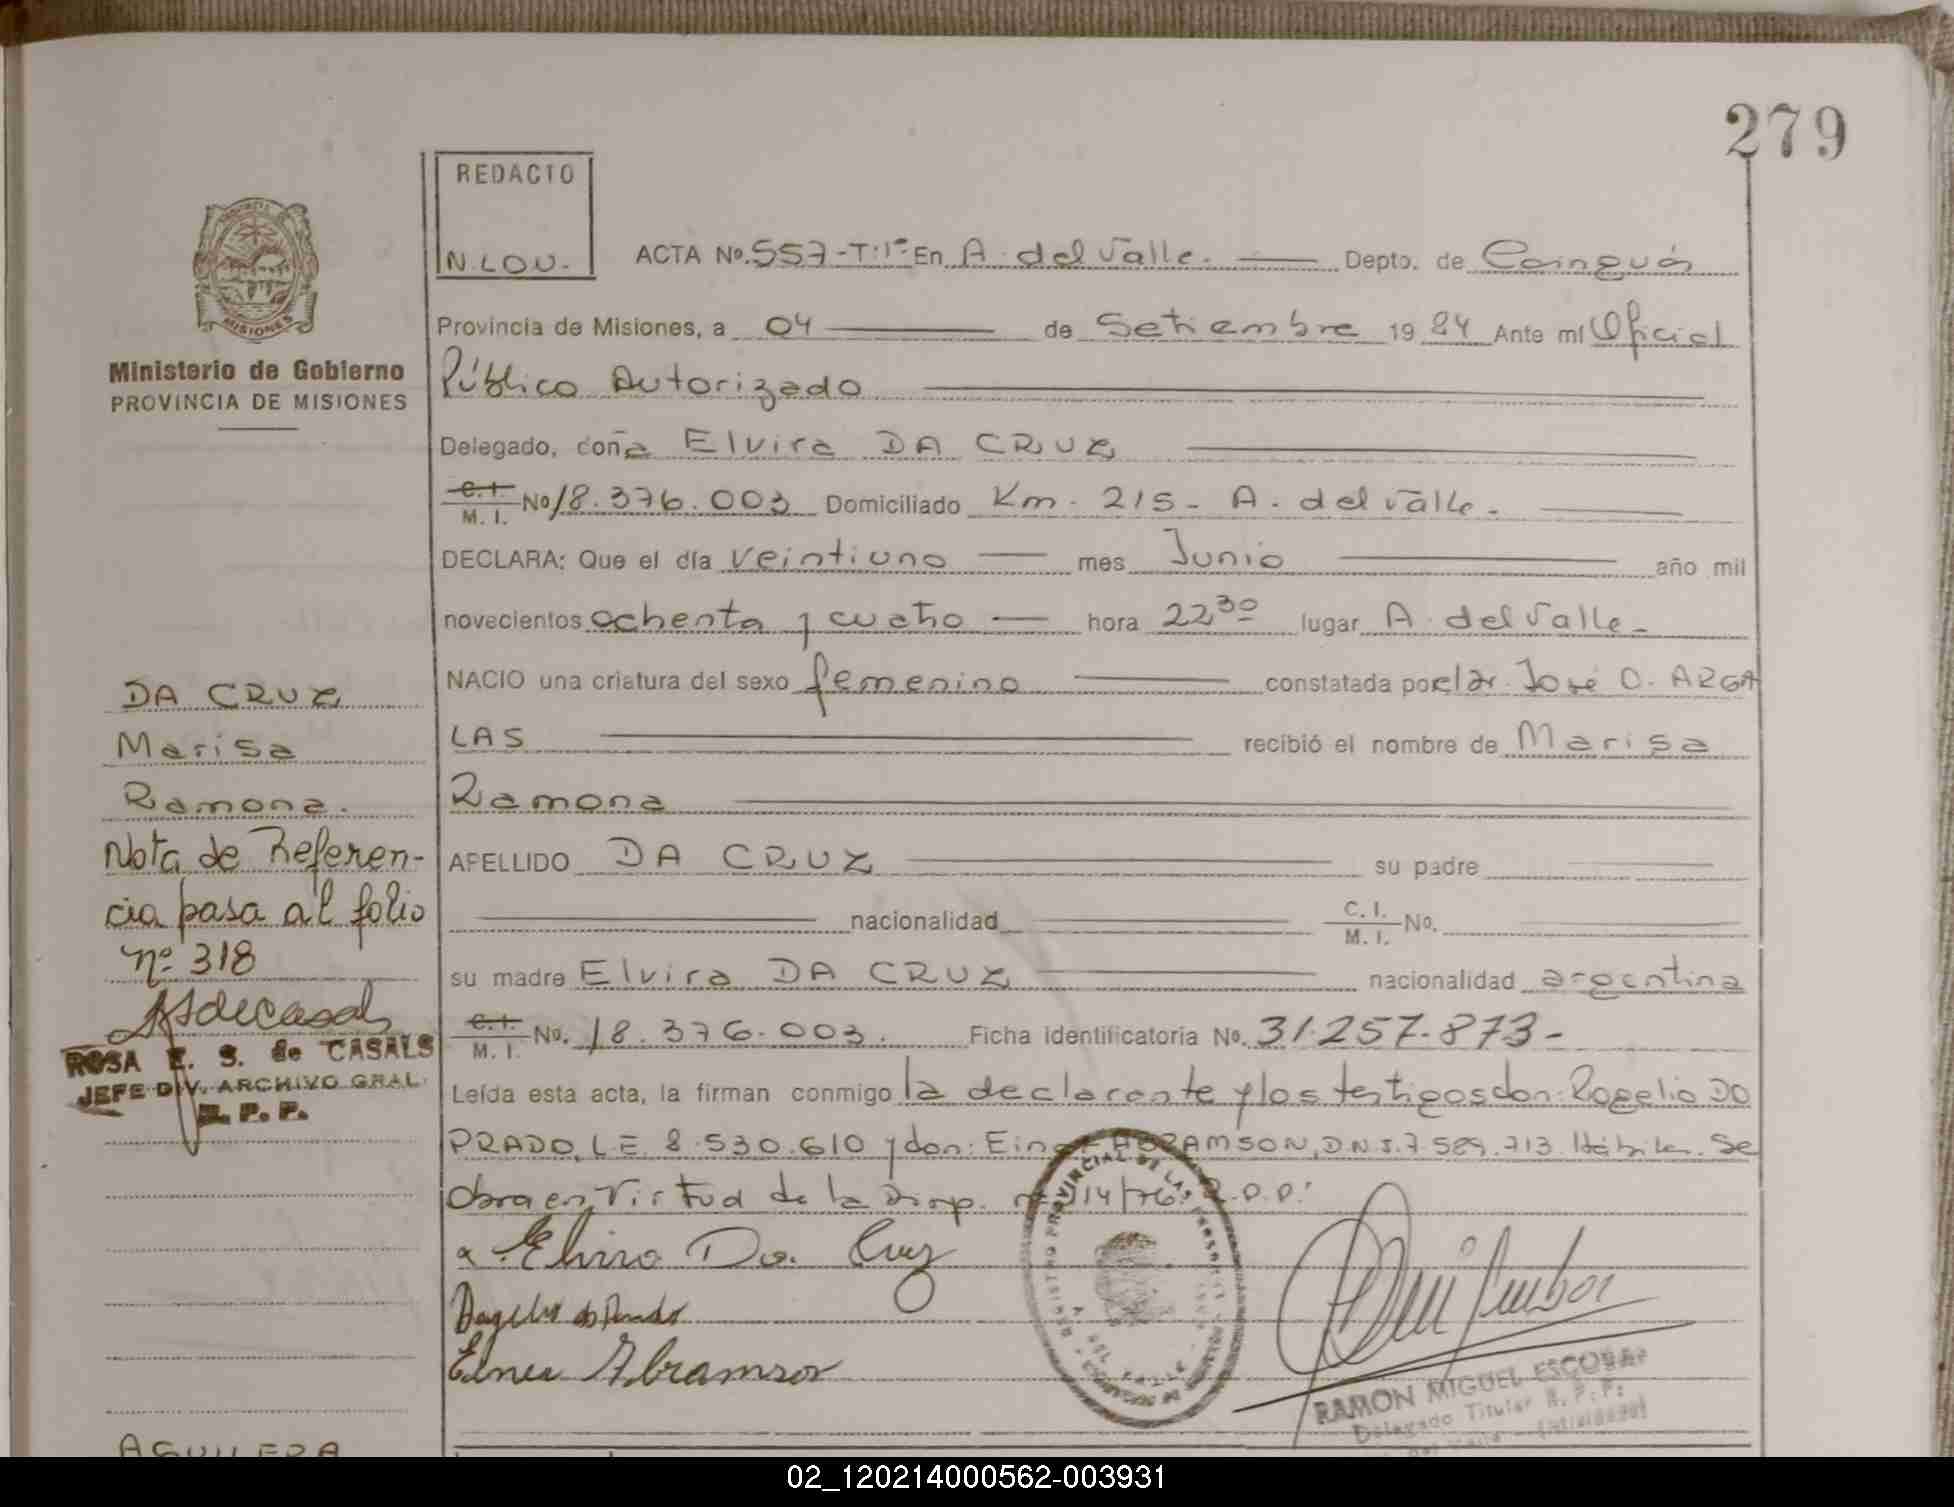 279
REDACTO
N.LOU.
ACTA Nº 557-T:1º En A. del Valle. Depto. de Cainguás
Provincia de Misiones, a 04 de Setiembre 1984 Ante mí Oficial
Público Autorizado
Delegado, doña Elvira DA CRUZ
C.I. M.I. Nº 18.376.003 Domiciliado Km. 215 - A. del Valle.
DECLARA: Que el día veintiuno mes Junio año mil
novecientos ochenta y cuatro hora 22 30 lugar A. del Valle-
NACIO una criatura del sexo femenino constatada por el dr. José O. ARGA
LAS recibió el nombre de Marisa
Ramona
APELLIDO DA CRUZ su padre
nacionalidad C.I. M.I. No.
su madre Elvira DA CRUZ nacionalidad argentina
C.I. M.I. No. 18.376.003. Ficha identificatoria No. 31.257.873-
Leída esta acta, la firman conmigo la declarante y los testigos don: Rogelio DO
PRADO, L.E. 8.530.610 y don: ABRAMSON, D.N.I. 7.589.713. Hábiles. Se
Obra en Virtud de la Disp. nº 114/76. R.P.P.
Elvira Da Cruz
Rogelio do Prado
Abramson
REGISTRO PROVINCIAL DE LAS PERSONAS
A. DEL VALLE
RAMON MIGUEL ESCOBAR
Delegado Titular R.P.P.
del Valle
PROVINCIA DE
MISIONES
Ministerio de Gobierno
PROVINCIA DE MISIONES
DA CRUZ
Marisa
Ramona.
Nota de Referen-
cia pasa al folio
nº 318
ROSA E. S. de CASALS
JEFE DIV. ARCHIVO GRAL.
R.P.P.
AGUILERA
02_120214000562-003931